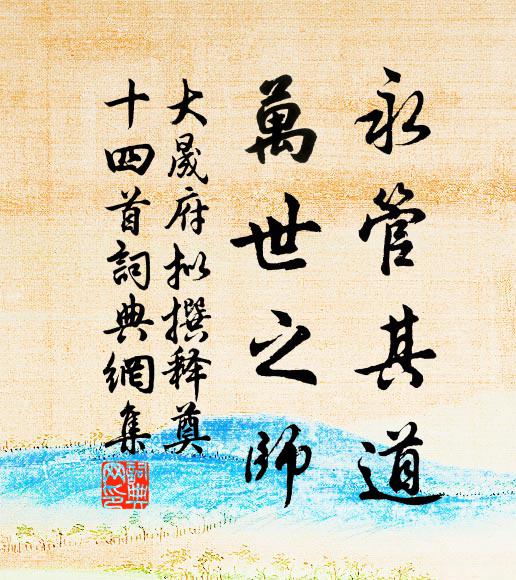 永管其道
萬世之師
大晟府拟撰释奠
十四首詞典網集